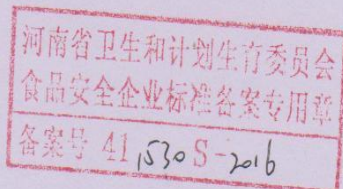 河南省卫生和计划生育委员会
食品安全企业标准备案专用章
备案号 41 1530 S-2016